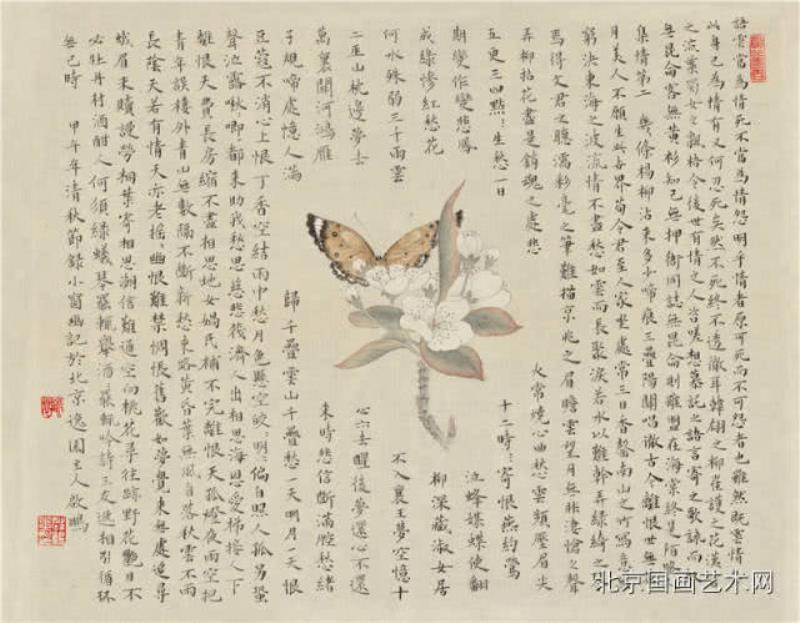 語雲當為情死不當為情怨明乎情者原可死而不可怨者也雖然既雲情
以身已為情有又何忍死矣然不死終不透徹耳韓翃之柳崔護之花漢宮
之流葉蜀女之飄梧令後世有情之人咨嗟想慕託之語言寄之歌詠而
無昆侖客無黃衫知己無押衙同誌無昆侖則雖盟在海棠終是陌路
集情第二 幾條楊柳沾來多少啼痕三疊陽關唱徹古今離恨世無
月美人不願生此世界荀令君至人家坐處常三日香罄南山之竹寫意
窮決東海之波流情不盡愁如雲而長聚淚若水以難幹弄綠綺之
焉得文君之聽濡彩毫之筆難描京兆之眉瞻雲望月無非淒愴之聲
弄柳拈花盡是銷魂之處悲
火常燒心曲愁雲頻壓眉尖
五更三四點點點生愁一日
十二時時時寄恨燕約鶯
期變作鸞悲鳳
泣蜂媒蝶使翻
成綠慘紅愁花
柳深藏淑女居
何水殊弱三千雨雲
不入襄王夢空憶十
二巫山枕邊夢去
心亦去醒後夢還心不還
萬裏關河鴻雁
來時悲信斷滿腔愁緒
子規啼處憶人滿
歸千疊雲山千疊愁一天明月一天恨
豆蔻不消心上恨丁香空結雨中愁月色懸空皎皎明明偏自照人孤另蛩
聲泣露啾啾唧唧都來助我愁思慈悲筏濟人出相思海恩愛梯接人下
離恨天費長房縮不盡相思地女媧氏補不完離恨天孤燈夜雨空把
青年誤樓外青山無數隔不斷新愁來路黃昏葉無風自落秋雲不雨
長陰天若有情天亦老搖搖幽恨難禁惆悵舊歡如夢覺來無處追尋
蛾眉未贖謾勞桐葉寄相思潮信難通空向桃花尋往跡野花艷目不
必牡丹村酒酣人何須綠蟻琴罷輒舉酒酒罷輒吟詩三友遞相引循環
無已時 甲午年清秋節錄小窗幽記於北京逸園主人啟鵬
北京国画艺术网